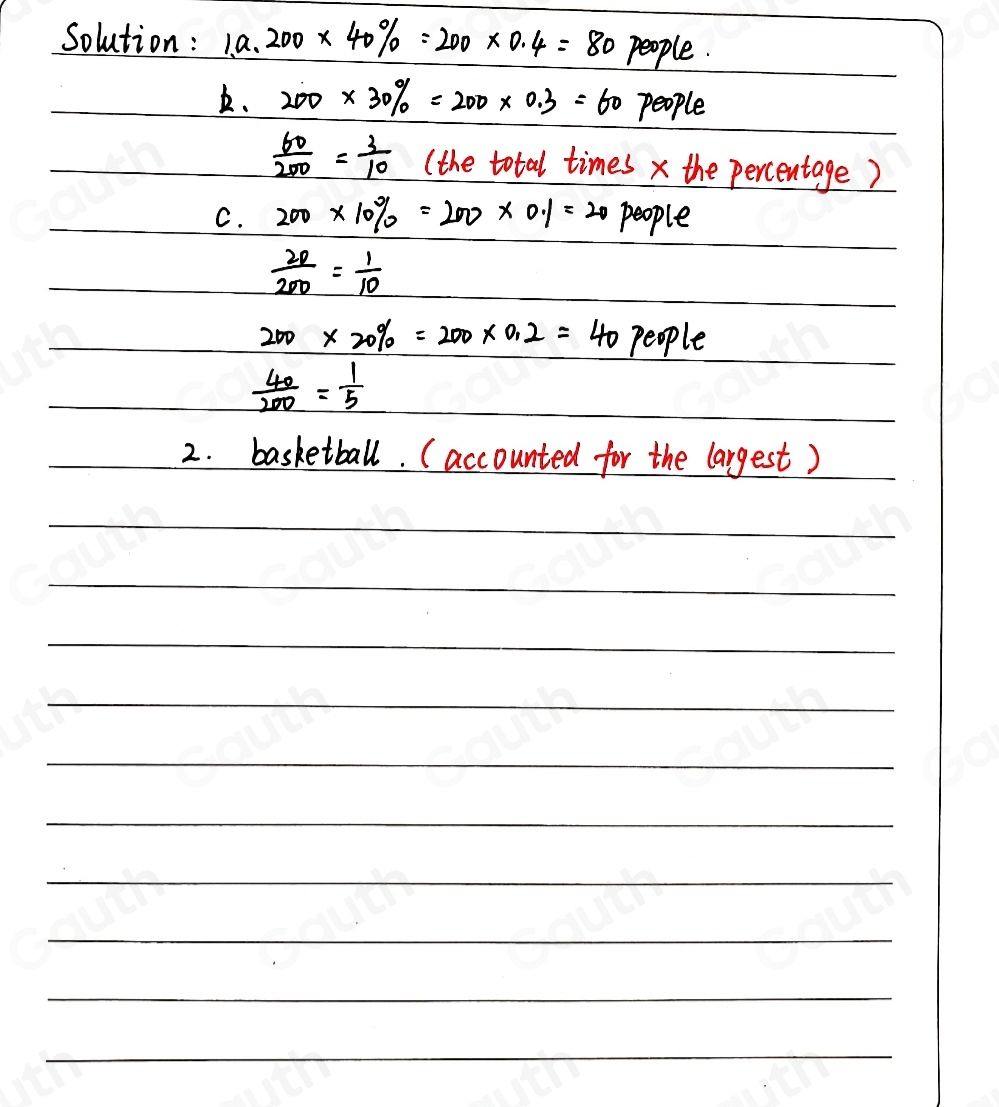 Solution: 1.a. 200 × 40% = 200 × 0.4 = 80 people.
b. 200 × 30% = 200 × 0.3 = 60 people
60/200 = 3/10 (the total times × the percentage)
c. 200 × 10% = 200 × 0.1 = 20 people
20/200 = 1/10
200 × 20% = 200 × 0.2 = 40 people
40/200 = 1/5
2. basketball. (accounted for the largest)